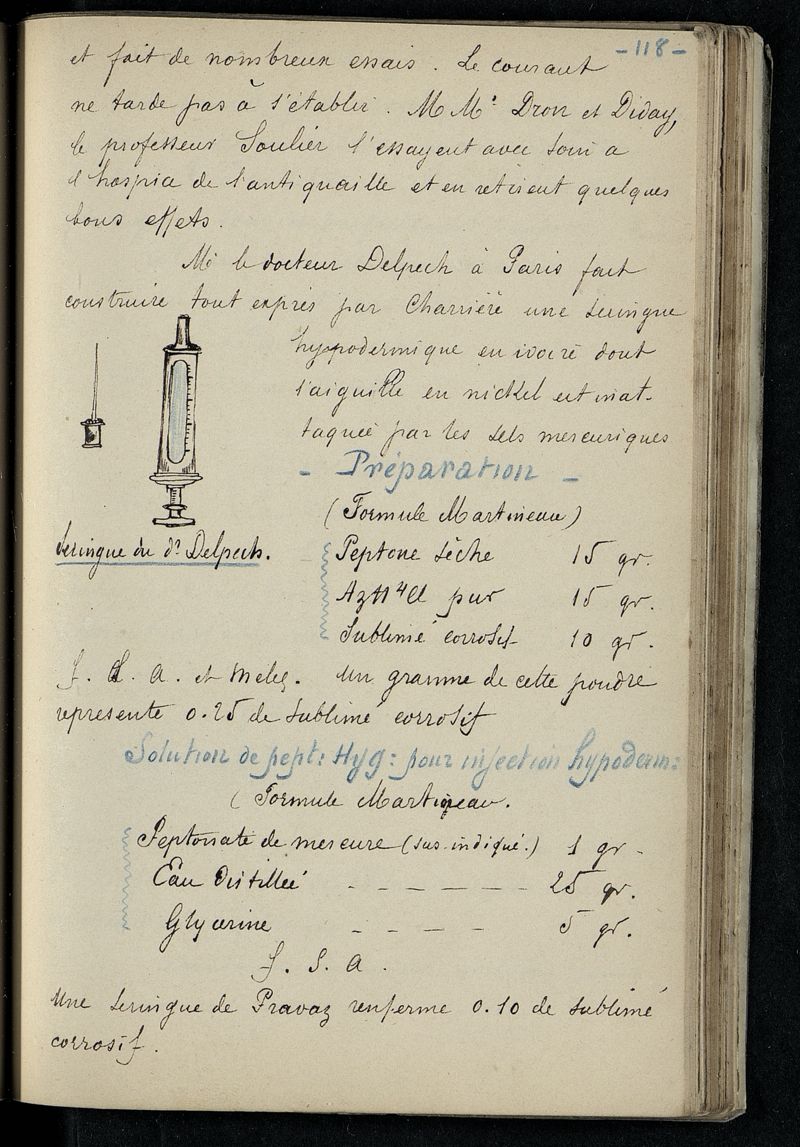 -118-
et fait de nombreux essais. Le courant
ne tarde pas à s'établir. M M.s Dron et Diday,
le professeur Soulier l'essayent avec soin a
l'hospia de l'antiquaille et en retirent quelques
bons effets.
Mr le docteur Delpech à Paris fait
construire tout exprès par Charrière une seringue
hypodermique en ivoire dont
l'aiguille en nickel est inat-
taquée par les sels mercuriques
- Préparation -
(Formule Martineau)
Seringue du dr Delpech.
Peptone sèche 15 gr.
AzH4Cl pur 15 gr.
Sublimé corrosif 10 gr.
f. S. A. et melez. Un gramme de cette poudre
represente 0.25 de sublimé corrosif
Solution de pept: Hyg: pour injection hypoderm:
(Formule Martineau.
Peptonate de mercure (sus-indiqué.) 1 gr.
Eau distillée - - - - - - 25 gr.
Glycerine - - - - - 5 gr.
f. S. A.
Une seringue de Pravaz renferme 0.10 de sublimé
corrosif.